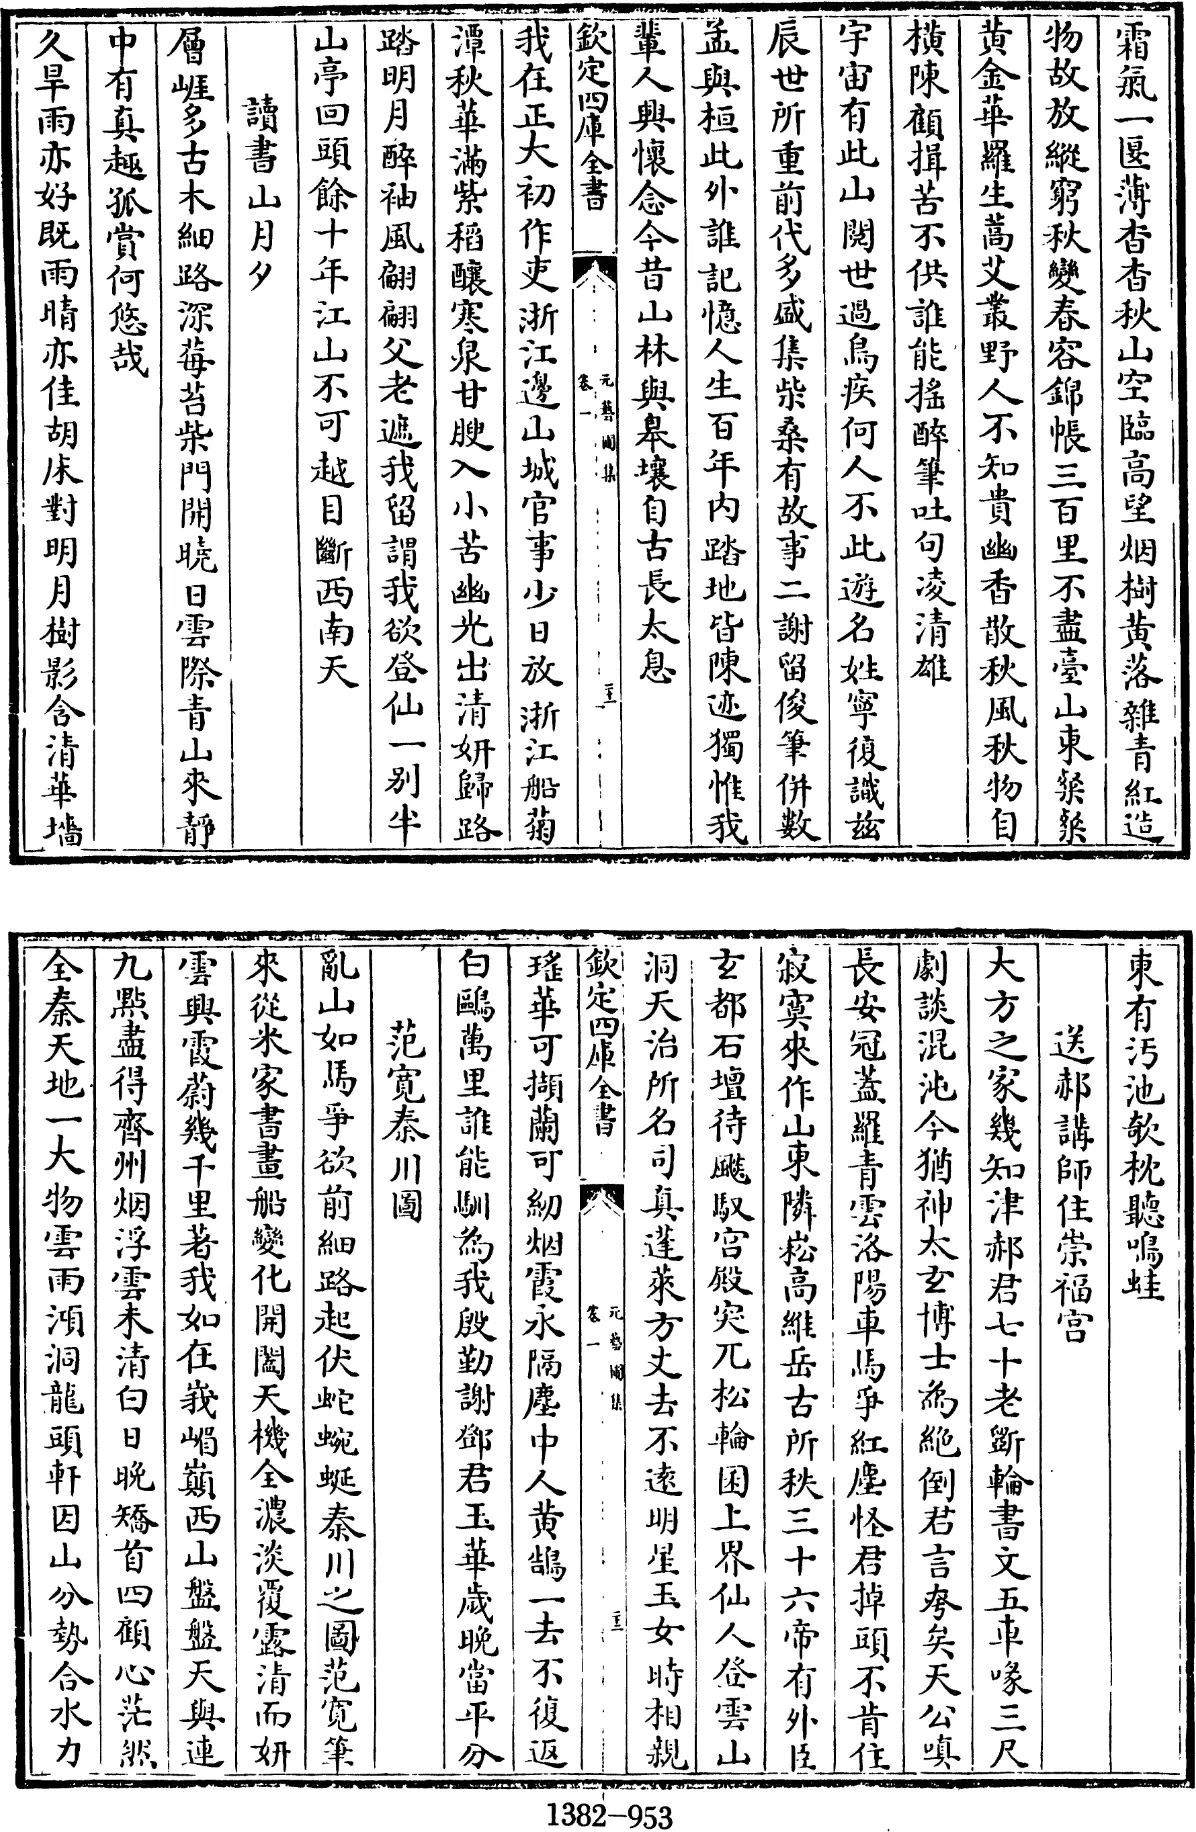 霜氣一匽薄杳杳秋山空臨高望烟樹黄落雜青紅造
物故放縱窮秋變春容錦帳三百里不盡臺山東粲粲
黄金華羅生蒿艾叢野人不知貴幽香散秋風秋物自
横陳顧揖苦不供誰能摇醉筆吐句凌清雄
宇宙有此山閲世過鳥疾何人不此遊名姓寧復識兹
辰世所重前代多盛集柴桑有故事二謝留俊筆併數
孟與桓此外誰記憶人生百年内踏地皆陳迹獨惟我
輩人興懷念今昔山林與臯壤自古長太息
欽定四庫全書
元藝圃集
卷一
二十一
我在正大初作吏浙江邊山城官事少日放浙江船菊
潭秋華滿紫稻釀寒泉甘腴入小苦幽光出清妍歸路
踏明月醉袖風翩翩父老遮我留謂我欲登仙一别半
山亭回頭餘十年江山不可越目斷西南天
讀書山月夕
層崕多古木細路深莓苔柴門開曉日雲際青山來靜
中有真趣孤賞何悠哉
久旱雨亦好既雨晴亦佳胡牀對明月樹影含清華墻
東有汚池欹枕聽鳴蛙
送郝講師住崇福宫
大方之家幾知津郝君七十老斵輪書文五車喙三尺
劇談混沌今猶神太玄博士為絶倒君言夸矣天公嗔
長安冠蓋羅青雲洛陽車馬爭紅塵怪君掉頭不肯住
寂寞來作山東隣崧高維岳古所秩三十六帝有外臣
玄都石壇待飈馭宫殿突兀松輪囷上界仙人登雲山
洞天治所名司真蓬萊方丈去不遠明星玉女時相親
欽定四庫全書
元藝圃集
卷一
二十二
瑤華可擷蘭可紉烟霞永隔塵中人黄鵠一去不復返
白鷗萬里誰能馴為我殷勤謝鄧君玉華歳晚當平分
范寛秦川圖
亂山如馬爭欲前細路起伏蛇蜿蜒秦川之圖范寛筆
來從米家書畫船變化開闔天機全濃淡覆露清而妍
雲興霞蔚幾千里著我如在峩嵋巔西山盤盤天與連
九㸃盡得齊州烟浮雲未清白日晚矯首四顧心茫然
全秦天地一大物雲雨澒洞龍頭軒因山分勢合水力
1382-953